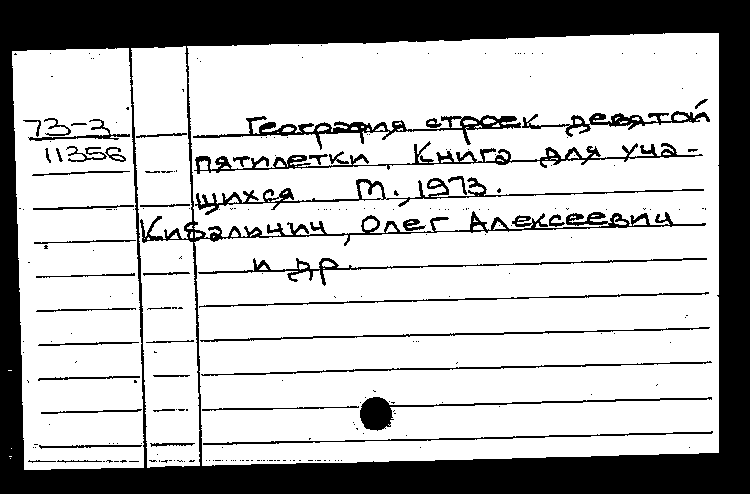 73-3
11356
География строек девятой
пятилетки. Книга для уча-
щихся. М., 1973.
Кибальчич, Олег Алексеевич
и др.